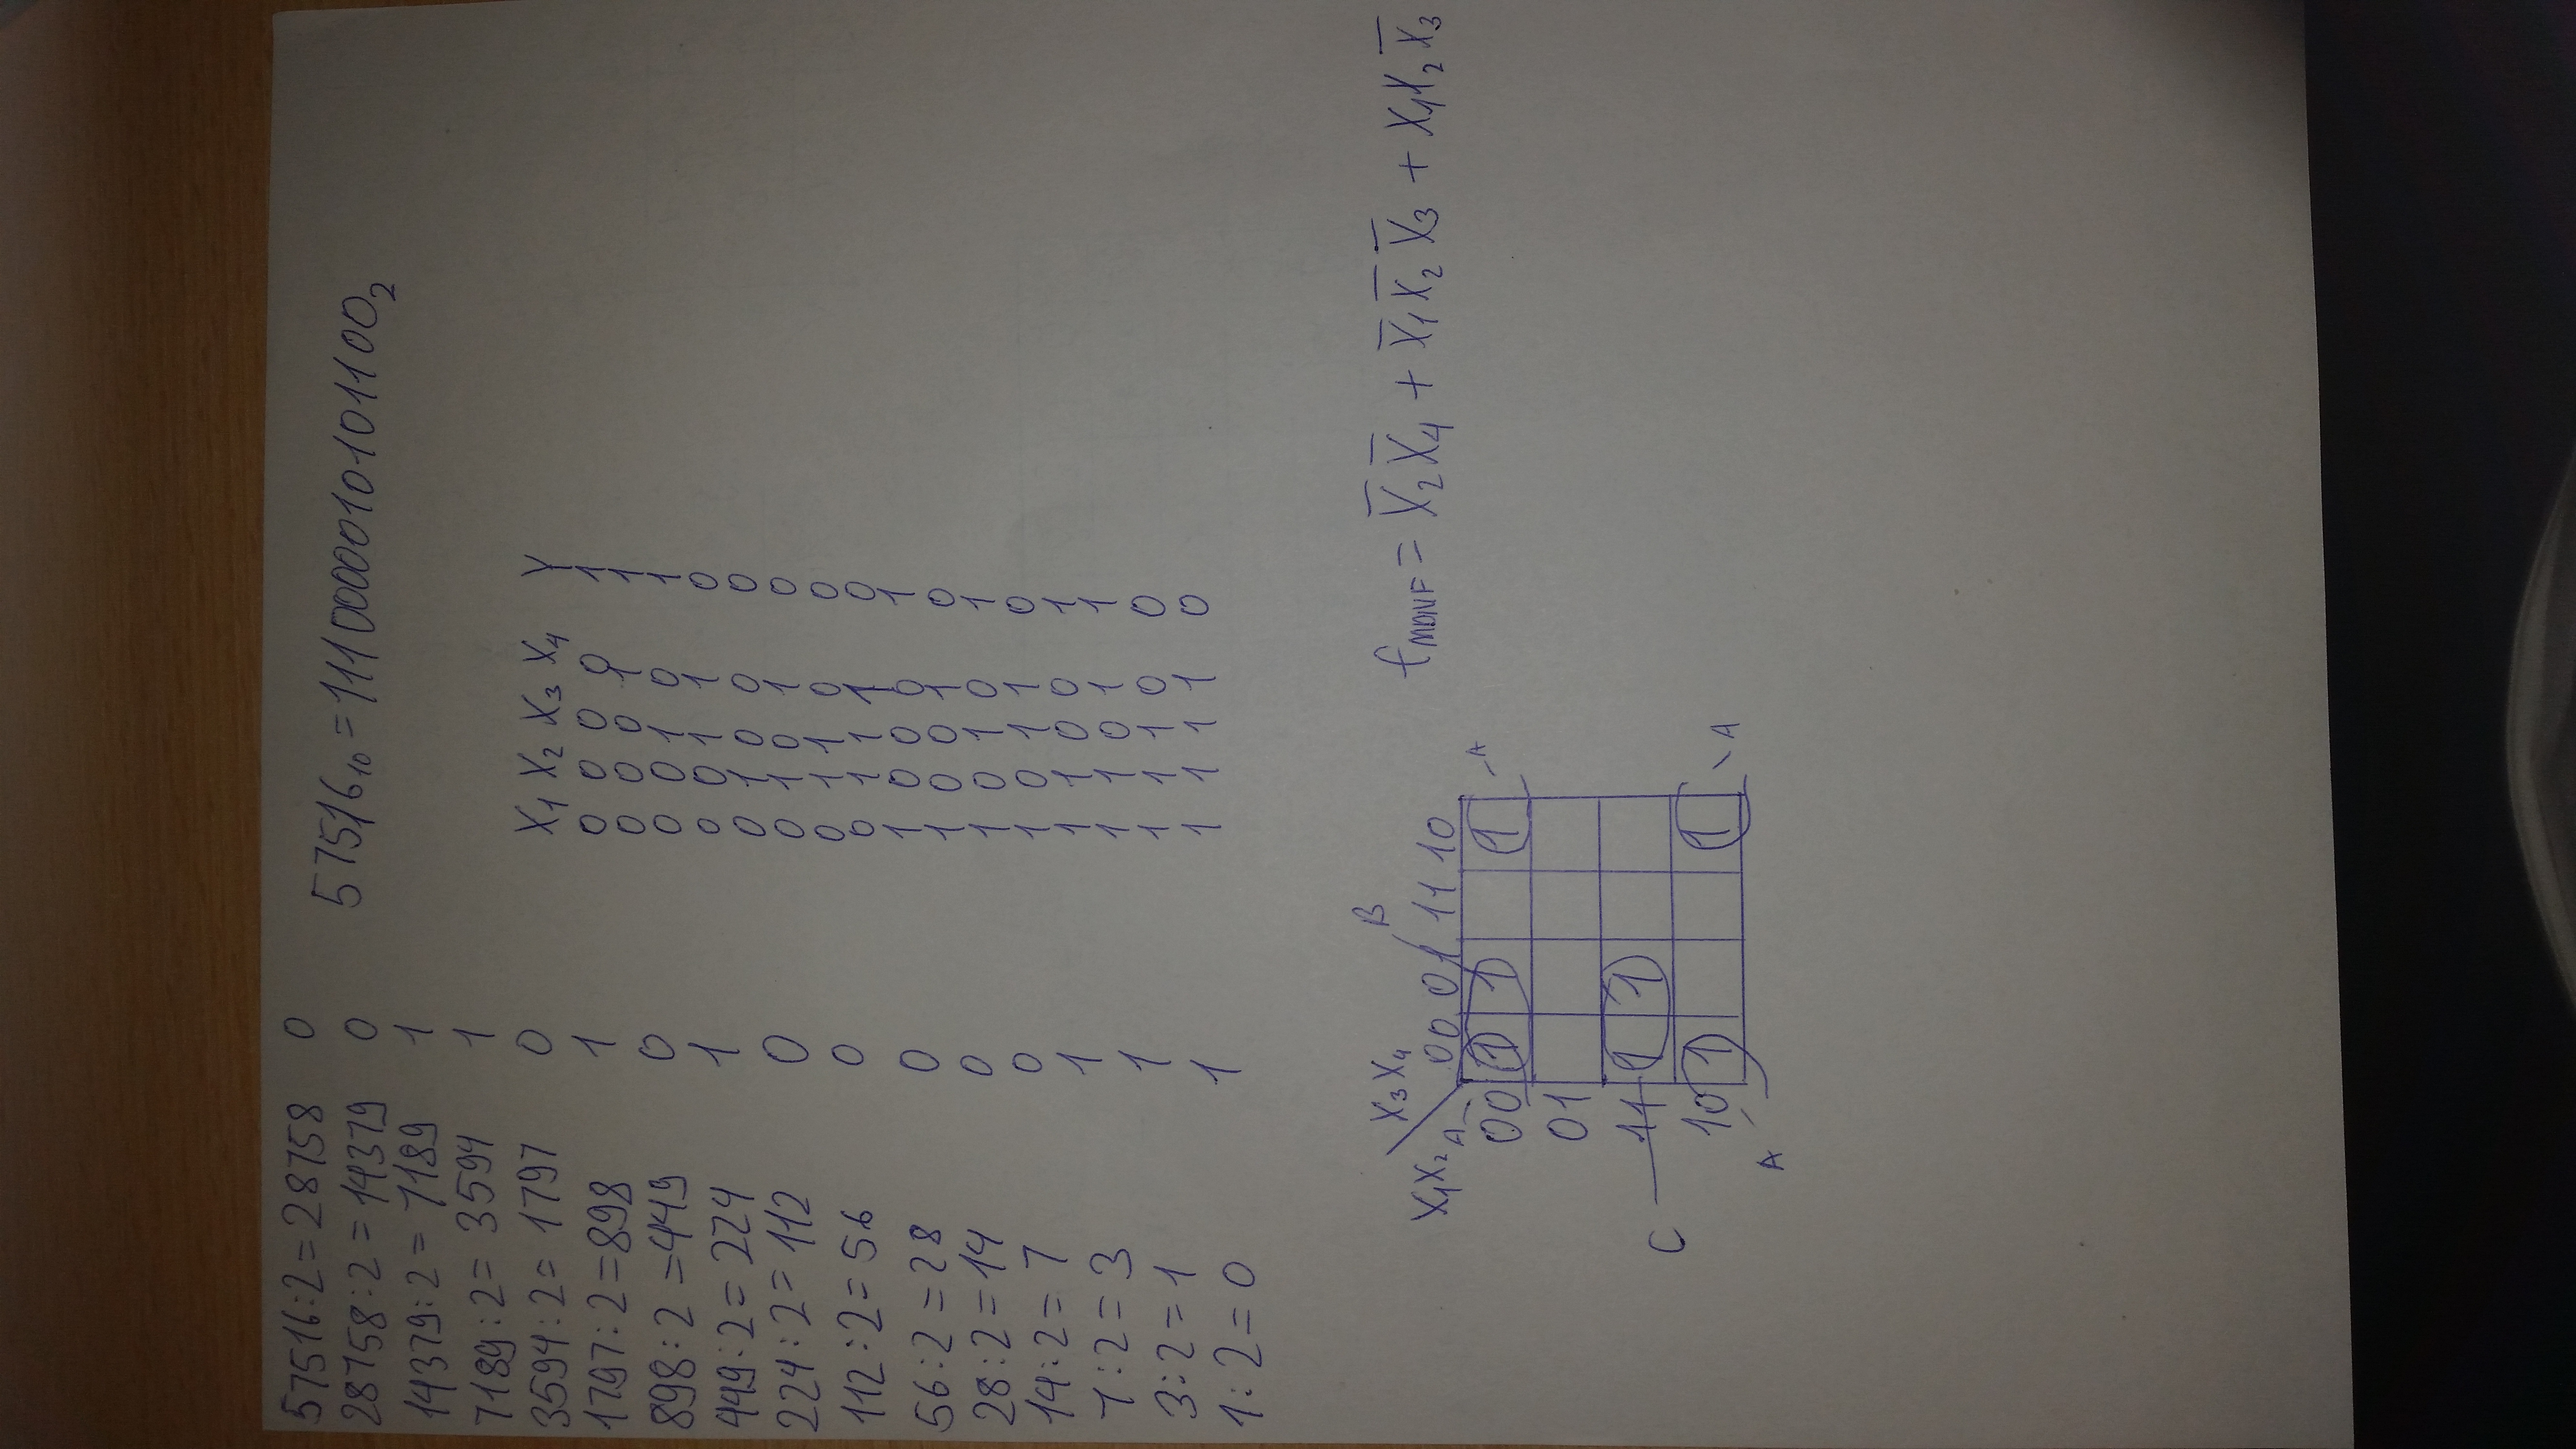 57516:2=28758 0
28758:2=14379 0
14379:2=7189 1
7189:2=3594 1
3594:2=1797 0
1797:2=898 1
898:2=449 0
449:2=224 1
224:2=112 0
112:2=56 0
56:2=28 0
28:2=14 0
14:2=7 0
7:2=3 1
3:2=1 1
1:2=0 1
57516₁₀=1110000010101100₂
X₁ X₂ X₃ X₄ Y
0 0 0 0 1
0 0 0 1 1
0 0 1 0 1
0 0 1 1 0
0 1 0 0 0
0 1 0 1 0
0 1 1 0 0
0 1 1 1 0
1 0 0 0 1
1 0 0 1 0
1 0 1 0 1
1 0 1 1 0
1 1 0 0 1
1 1 0 1 1
1 1 1 0 0
1 1 1 1 0
B
X₃X₄
X₁X₂ A 00 01 11 10
00 1 1 1 A
01
C 11 1 1
10 1 1 A
A
f_MDNF = X̅₂X̅₄ + X̅₁X̅₂X̅₃ + X₁X₂X̅₃